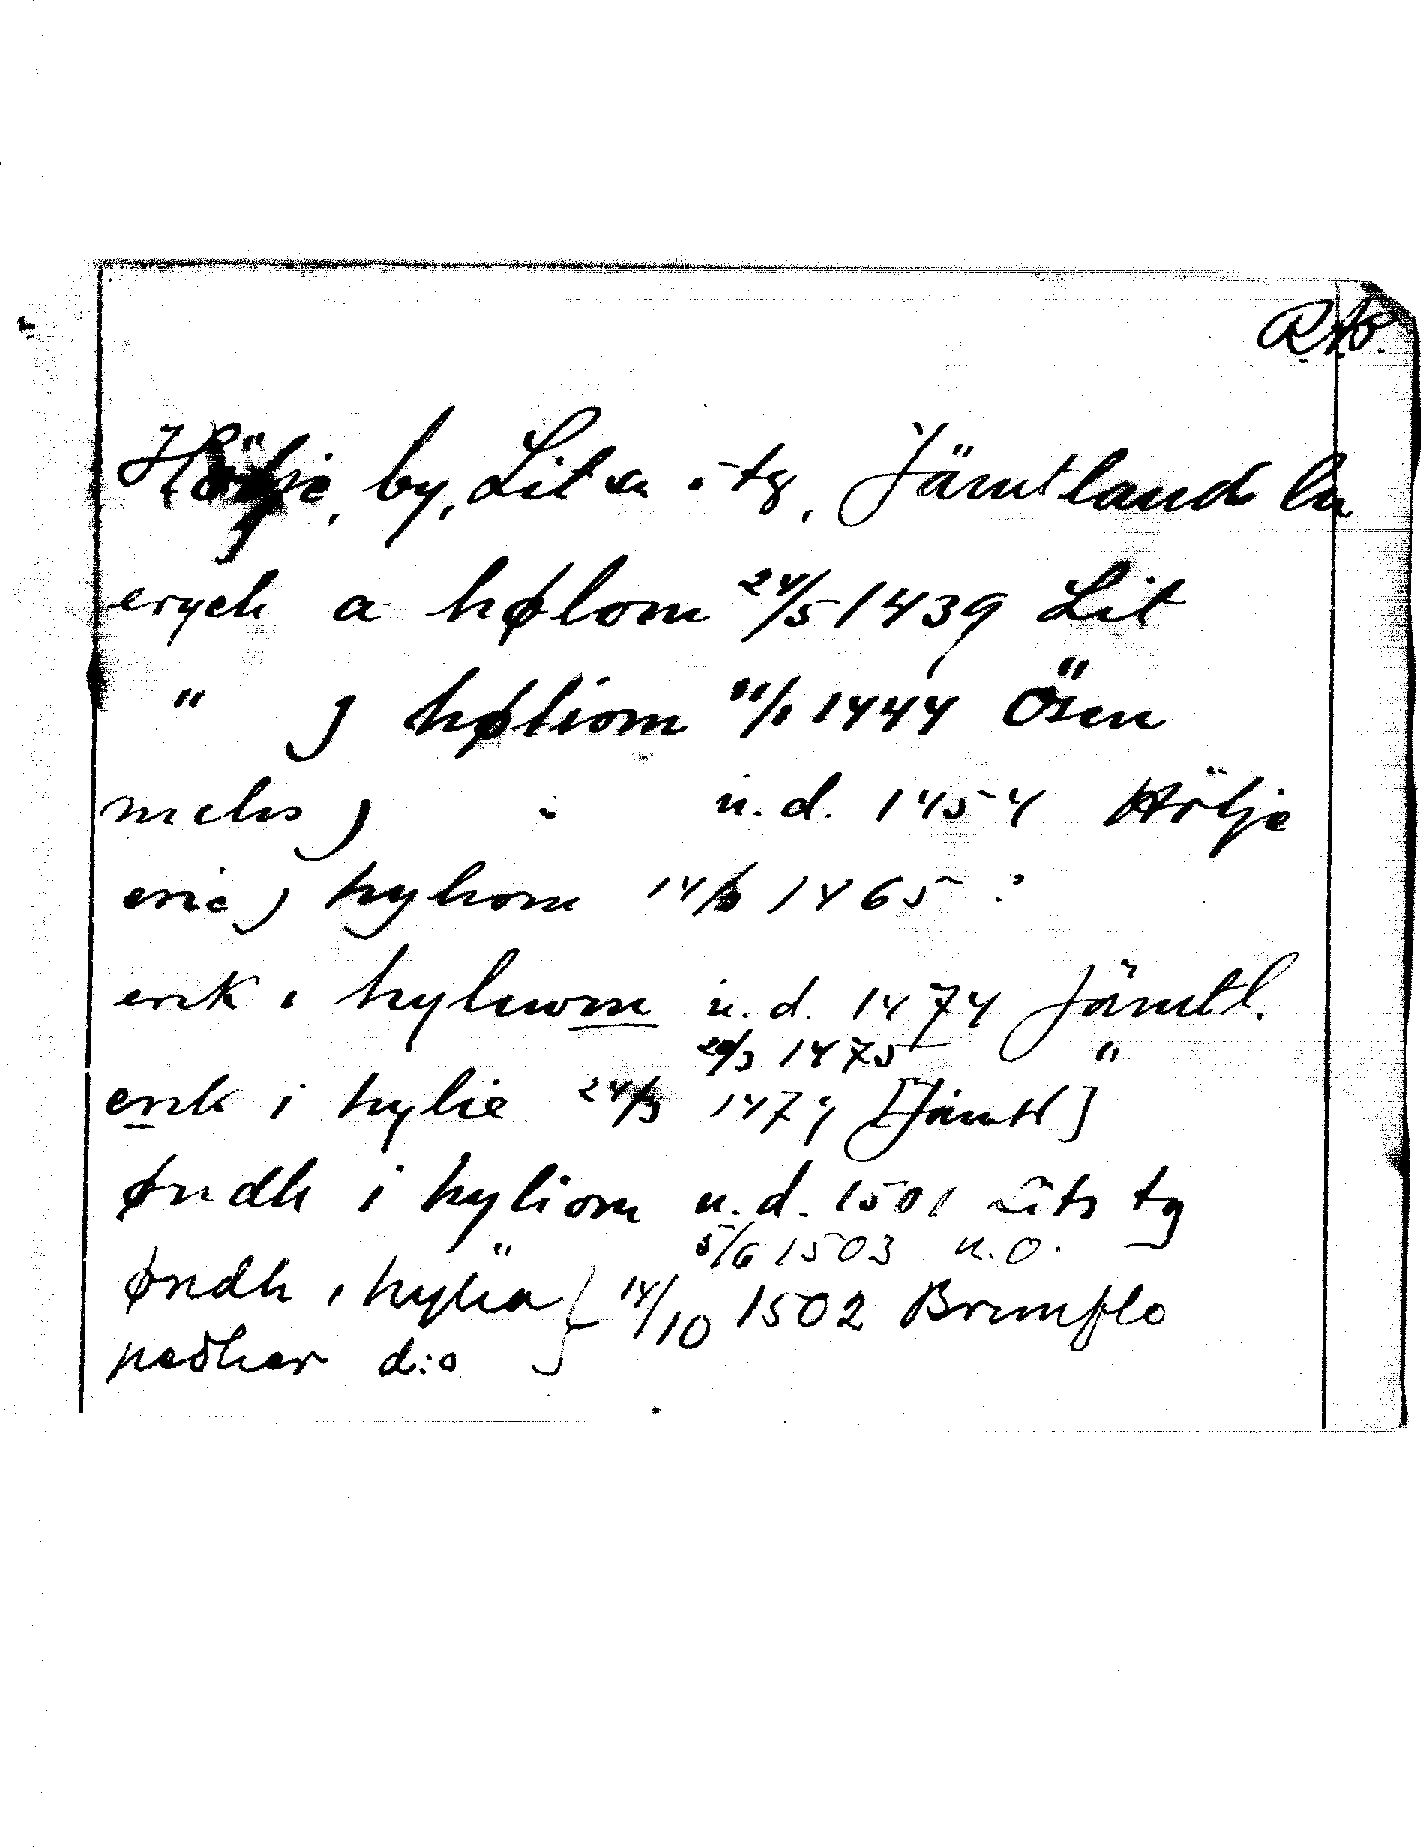 Hölje, by, Lits s. o. tg, Jämtland ln
erych a hølom 24/5 1439 Lit
" j høliom 1444 Ösen
niclis j " u.d. 1454 Hölje
eric j hyliom 14/3 1465 ?
erik i hyliwom u.d. 1474 Jämtl.
20/3 1475 "
erik i hylie 24/3 1474 [Jämtl]
øndh i hyliom u.d. 1501 Lits tg
5/6 1503 u.o.
øndh i hylia } 14/10 1502 Brunflo
pedher d:o